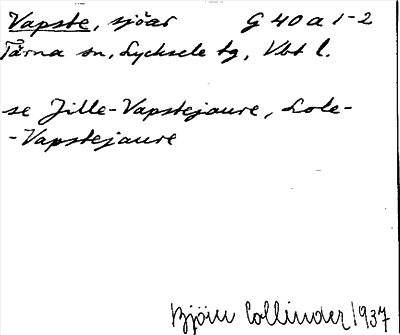 Vapste, sjöar G 40 a 1-2
Tärna sn, Lycksele tg, Vbt l.
se Jille-Vapstejaure, Lole-
-Vapstejaure
Björn Collinder 1937